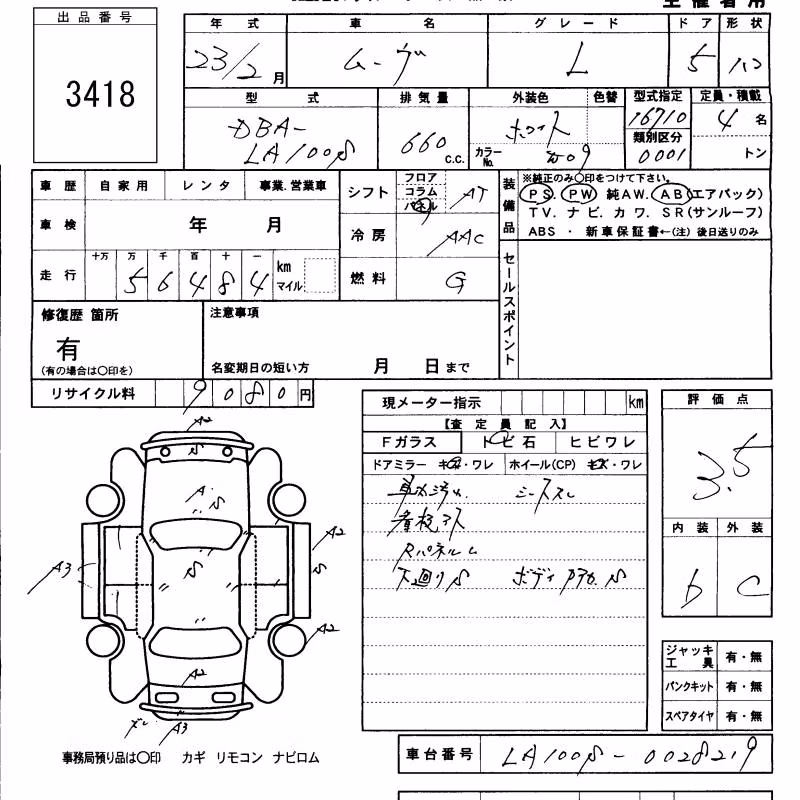 出品番号
3418
年式 車名 グレード ドア 形状
23/2月 ムーヴ L 5 ハコ
型式 排気量 外装色 色替 型式指定 定員・積載
DBA-LA100S 660 c.c. ホワイト カラーNo. W09 16710 4名
類別区分 0001 トン
車歴 自家用 レンタ 事業.営業車
シフト フロア コラム パネル AT
装備品
※純正のみ○印をつけて下さい。
PS. PW 純AW. AB(エアバッグ)
TV. ナビ. カワ. SR(サンルーフ)
ABS ・ 新車保証書←(注) 後日送りのみ
車検 年 月
冷房 AAC
走行 十万 万 千 百 十 一
56484 km マイル
燃料 G
セールスポイント
修復歴 箇所
有
(有の場合は○印を)
注意事項
名変期日の短い方 月 日まで
リサイクル料 9080円
現メーター指示 km
【査定員記入】
Fガラス トビ石 ヒビワレ
ドアミラー キズ・ワレ ホイール(CP) キズ・ワレ
車内汚れ シートスレ
Rパネルム
下廻りS
評価点
3.5
内装 外装
b C
ジャッキ工具 有・無
パンクキット 有・無
スペアタイヤ 有・無
A2
S
A S
A2
S
S
A3
A2
A2
A3
事務局預り品は○印 カギ リモコン ナビロム
車台番号 LA100S-0028219